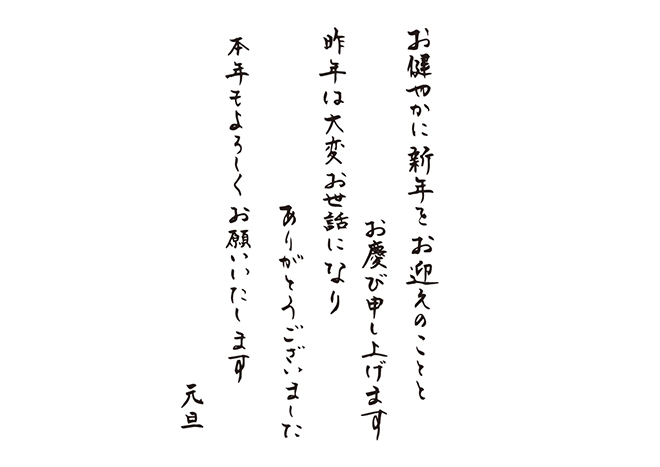 お健やかに新年をお迎えのことと
お慶び申し上げます
昨年は大変お世話になり
ありがとうございました
本年もよろしくお願いいたします
元旦